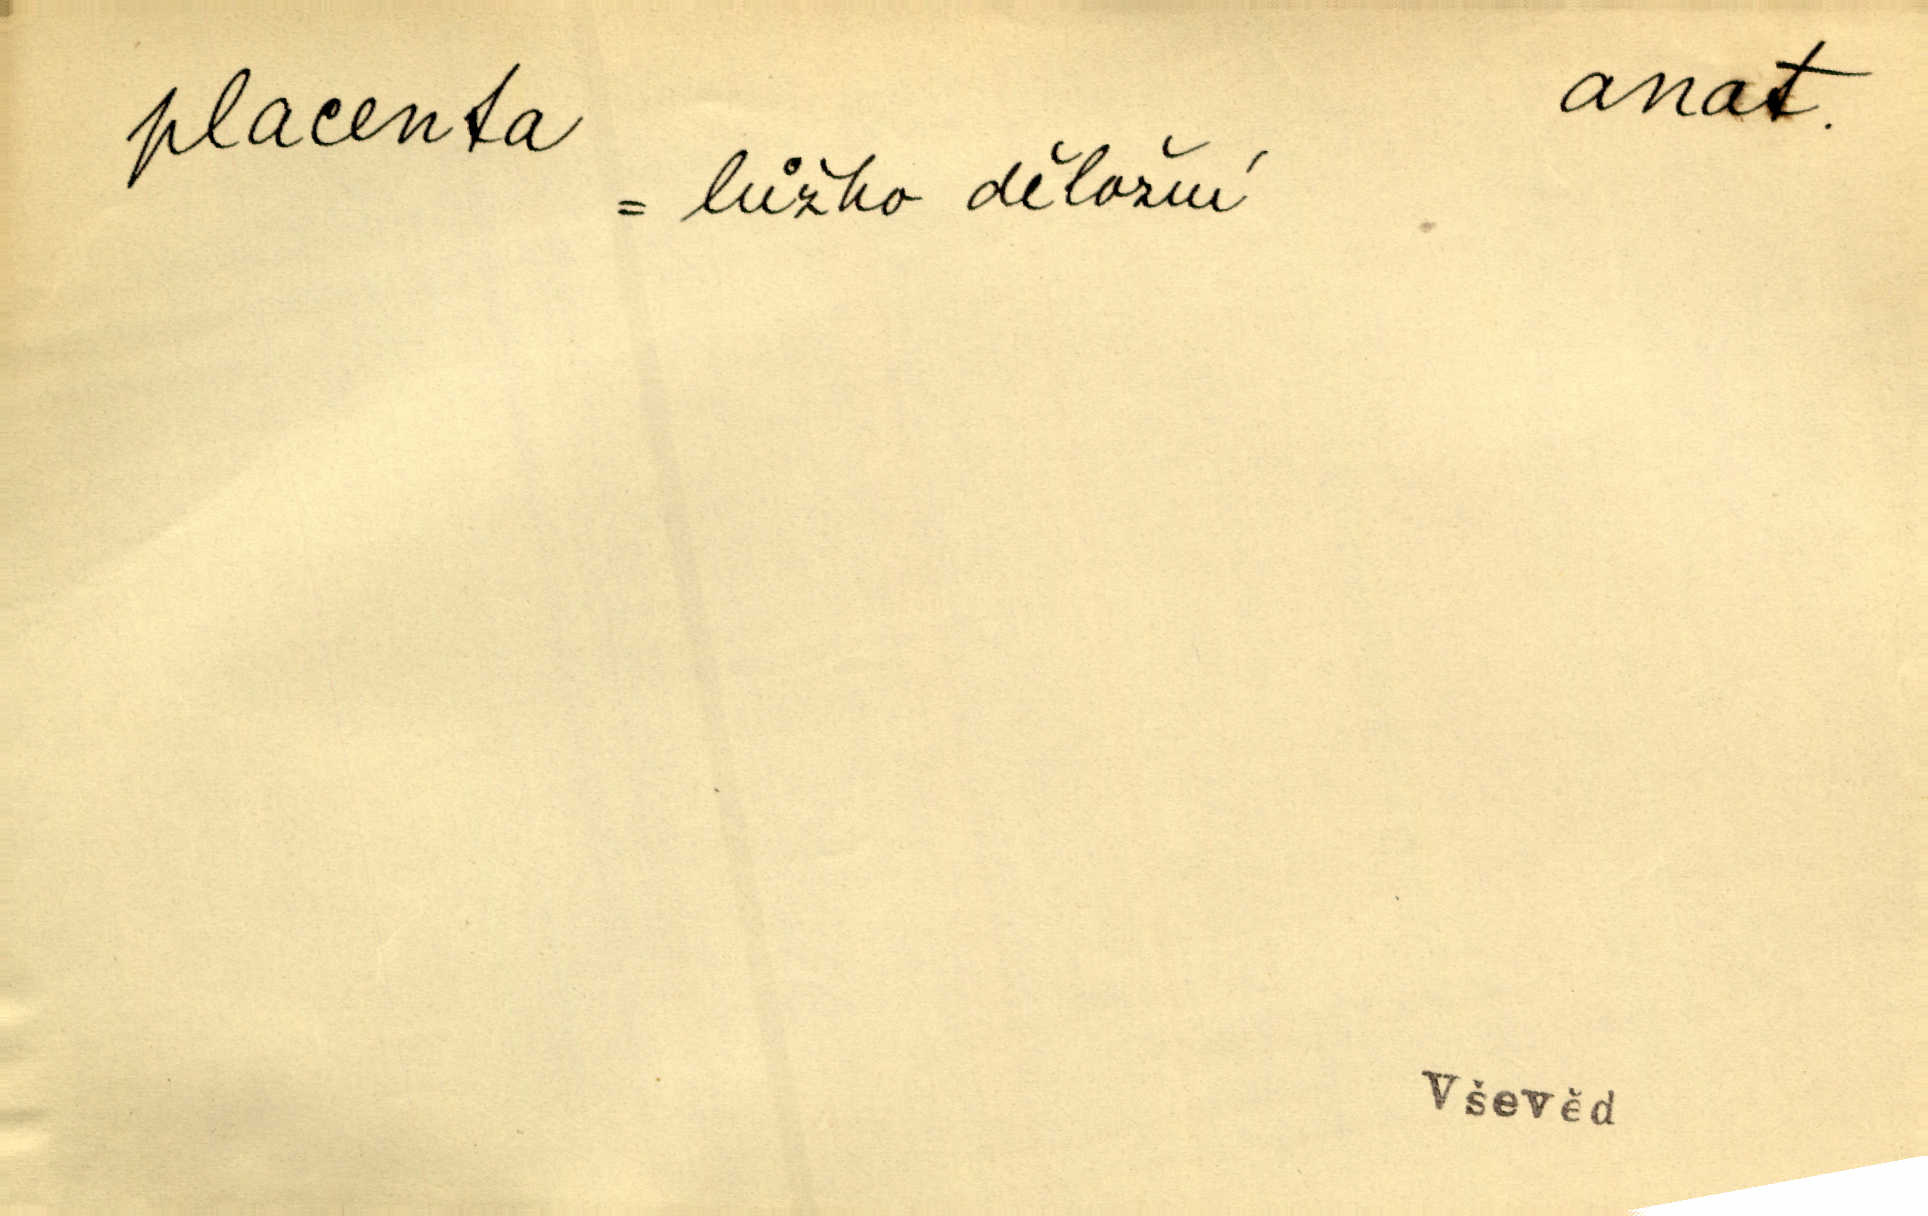 placenta anat.
= lůžko děložní
Vševěd